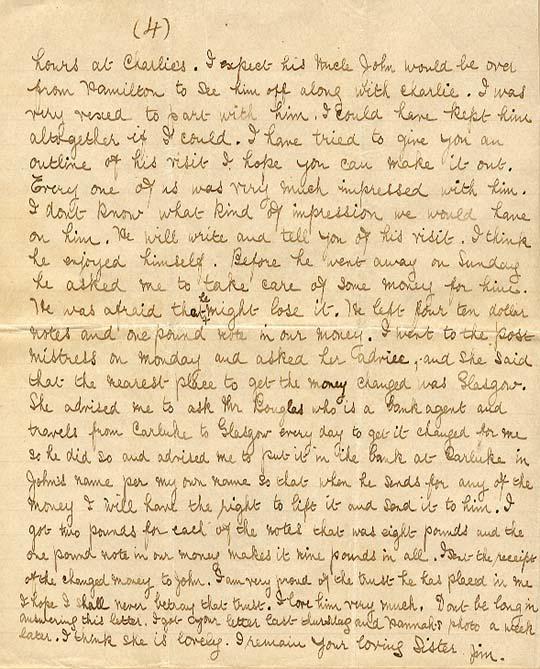 (4)
hours at Charlies. I expect his Uncle John would be over
from Hamilton to see him off along with Charlie. I was
very vexed to part with him. I could have kept him
altogether if I could. I have tried to give you an
outline of his visit I hope you can make it out.
Every one of us was very much impressed with him.
I don't know what kind of impression we would have
on him. He will write and tell you of his visit. I think
he enjoyed himself. Before he went away on Sunday
he asked me to take care of some money for him.
He was afraid that he might lose it. He left four ten dollar
notes and one pound note in our money. I went to the post
mistress on Monday and asked her advice, and she said
that the nearest place to get the money changed was Glasgow.
She advised me to ask Mr Douglas who is a bank agent and
travels from Carluke to Glasgow every day to get it changed for me
so he did so and advised me to put it in the bank at Carluke in
John's name per my own name so that when he sends for any of the
money I will have the right to lift it and send it to him. I
got two pounds for each of the notes that was eight pounds and the
one pound note in our money makes it nine pounds in all. I sent the receipt
of the changed money to John. I am very proud of the trust he has placed in me
I hope I shall never betray that trust. I love him very much. Dont be long in
answering this letter. I got your letter last thursday and Hannah's photo a week
later. I think she is lovely. I remain Your loving Sister